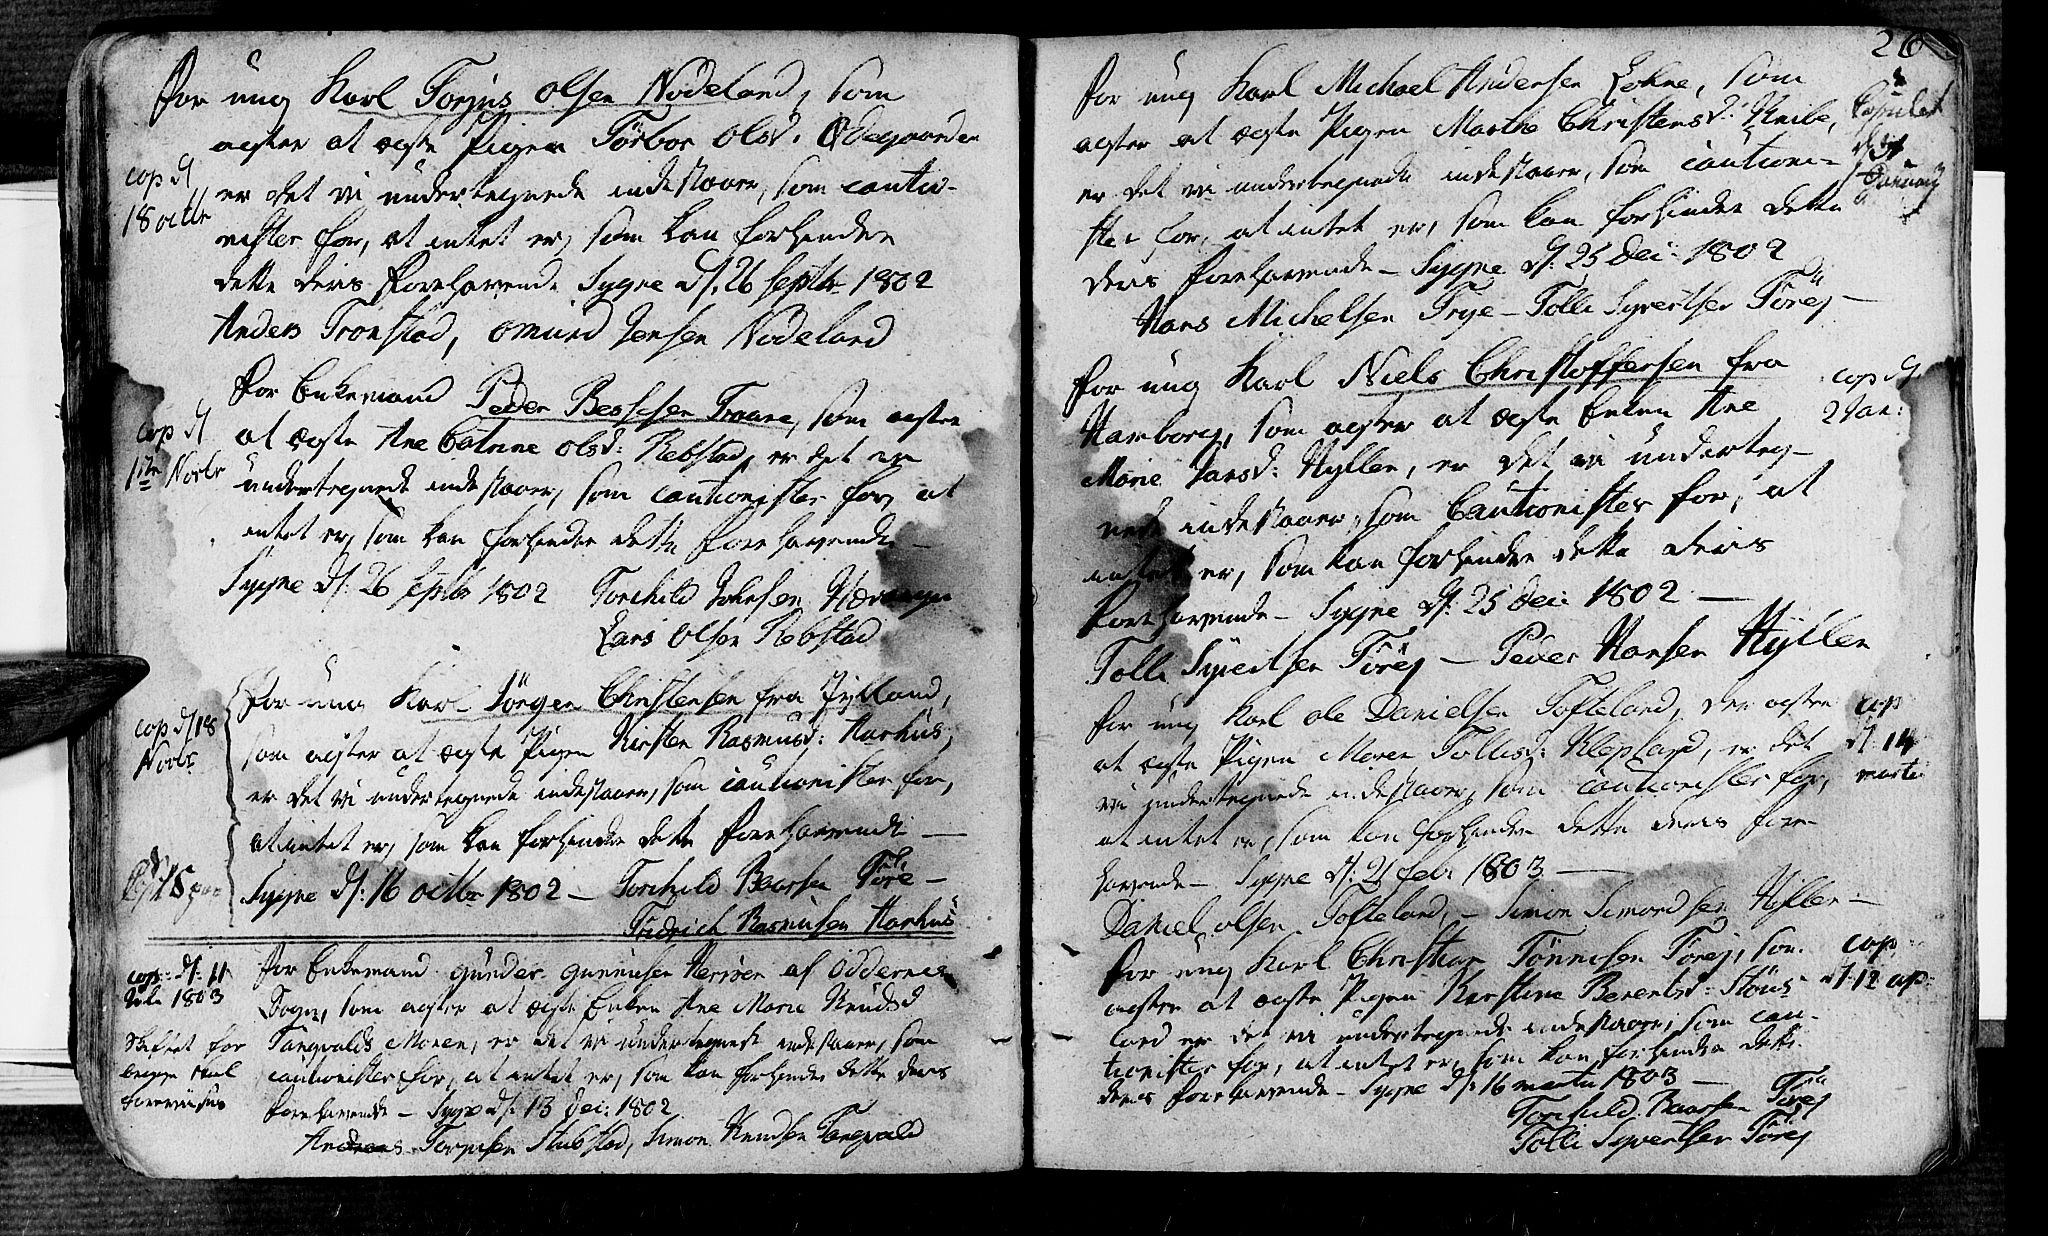 For ung Karl Torjus Olsen Nodeland, som
agter at ægte Pigen Torbor Olsd: Ødegaarden
cop d
18 octbr
er det vi undertegnede indestaaer, som cautio-
nister for, at intet er, som kan forhindre
dette deris Forehavende Sygne d: 26 Septbr 1802
Anders Tronstad, Omund Jensen Nodeland
For Enkemand Peder Bessesen Traane, som agter
cop d
1ste Novbr
at ægte Ane Catrine Olsd: Rebstad, er det vi
undertegnede indestaaer, som cautionister for, at
intet er, som kan forhindre dette Forehavende
Sygne d: 26 Septbr 1802 Torchild Johnsen
Lars Olsen Rebstad
For ung Karl Jörgen Christensen fra Jylland,
cop d 18
Novbr
som agter at ægte Pigen Kirsten Rasmusd: Aarhus,
er det vi undertegnede indestaaer, som cautionister for,
at intet er, som kan forhindre dette Forehavende —
Sygne d: 16 octbr 1802 — Torchild Baarsen
Fridrich Rasmusen Aarhus
cop: d: 11
1803
For Enkemand Gunder Gunnusen af Oddernes
Sogn, som agter at ægte Enken Ane Marie Knudsd
Skiftet for
Tangvalds Moeen, er det vi undertegnede indestaaer, som
begge
cautionister for, at intet er, som kan forhindre dette deris
Forehavende — Sygne d: 13 Dec: 1802
Andreas Torjusen Stubstad, Simon Knudsen Tangvald
26
For ung Karl Michael Andersen Lohne, som
agter at ægte Pigen Marthe Christensd:
Copulet
er det vi undertegnede indestaaer, som cautioni-
January
ster for, at intet er, som kan forhindre dette
deris Forehavende — Sygne d: 25 Dec: 1802
Hans Michelsen Trye — Tolli Syvertsen Töres —
For ung Karl Niels Christoffersen fra
cop d
2 Jan:
som agter at ægte Enken Ane
Marie Hansd: Hyllen, er det vi underteg-
nede indestaaer, som Cautionister for, at
intet er, som kan forhindre dette deris
Forehavende — Sygne d: 25 Dec: 1802 —
Tolli Syvertsen Töres — Peder Hansen Hyllen
For ung Karl Ole Danielsen Tofteland, der agter
cop
d: 14
marti
at ægte Pigen Maren Tollisd: Klepland, er det
vi undertegnede indestaaer, som cautionister for,
at intet er, som kan forhindre dette deris Fore-
havende — Sygne d: 21 Feb: 1803 —
Daniel Olsen Tofteland, — Simon Simondsen Hyllen —
For ung Karl Christian Tönnesen Töres, som
cop
d: 12 ap:
agter at ægte Pigen Karstine Berentsd: Stöus-
land er det vi undertegnede indestaaer, som cau-
tionister for, at intet er, som kan forhindre dette
deris Forehavende — Sygne d: 16 martii 1803 —
Torchild Baarsen Töres
Tolli Syvertsen Töres